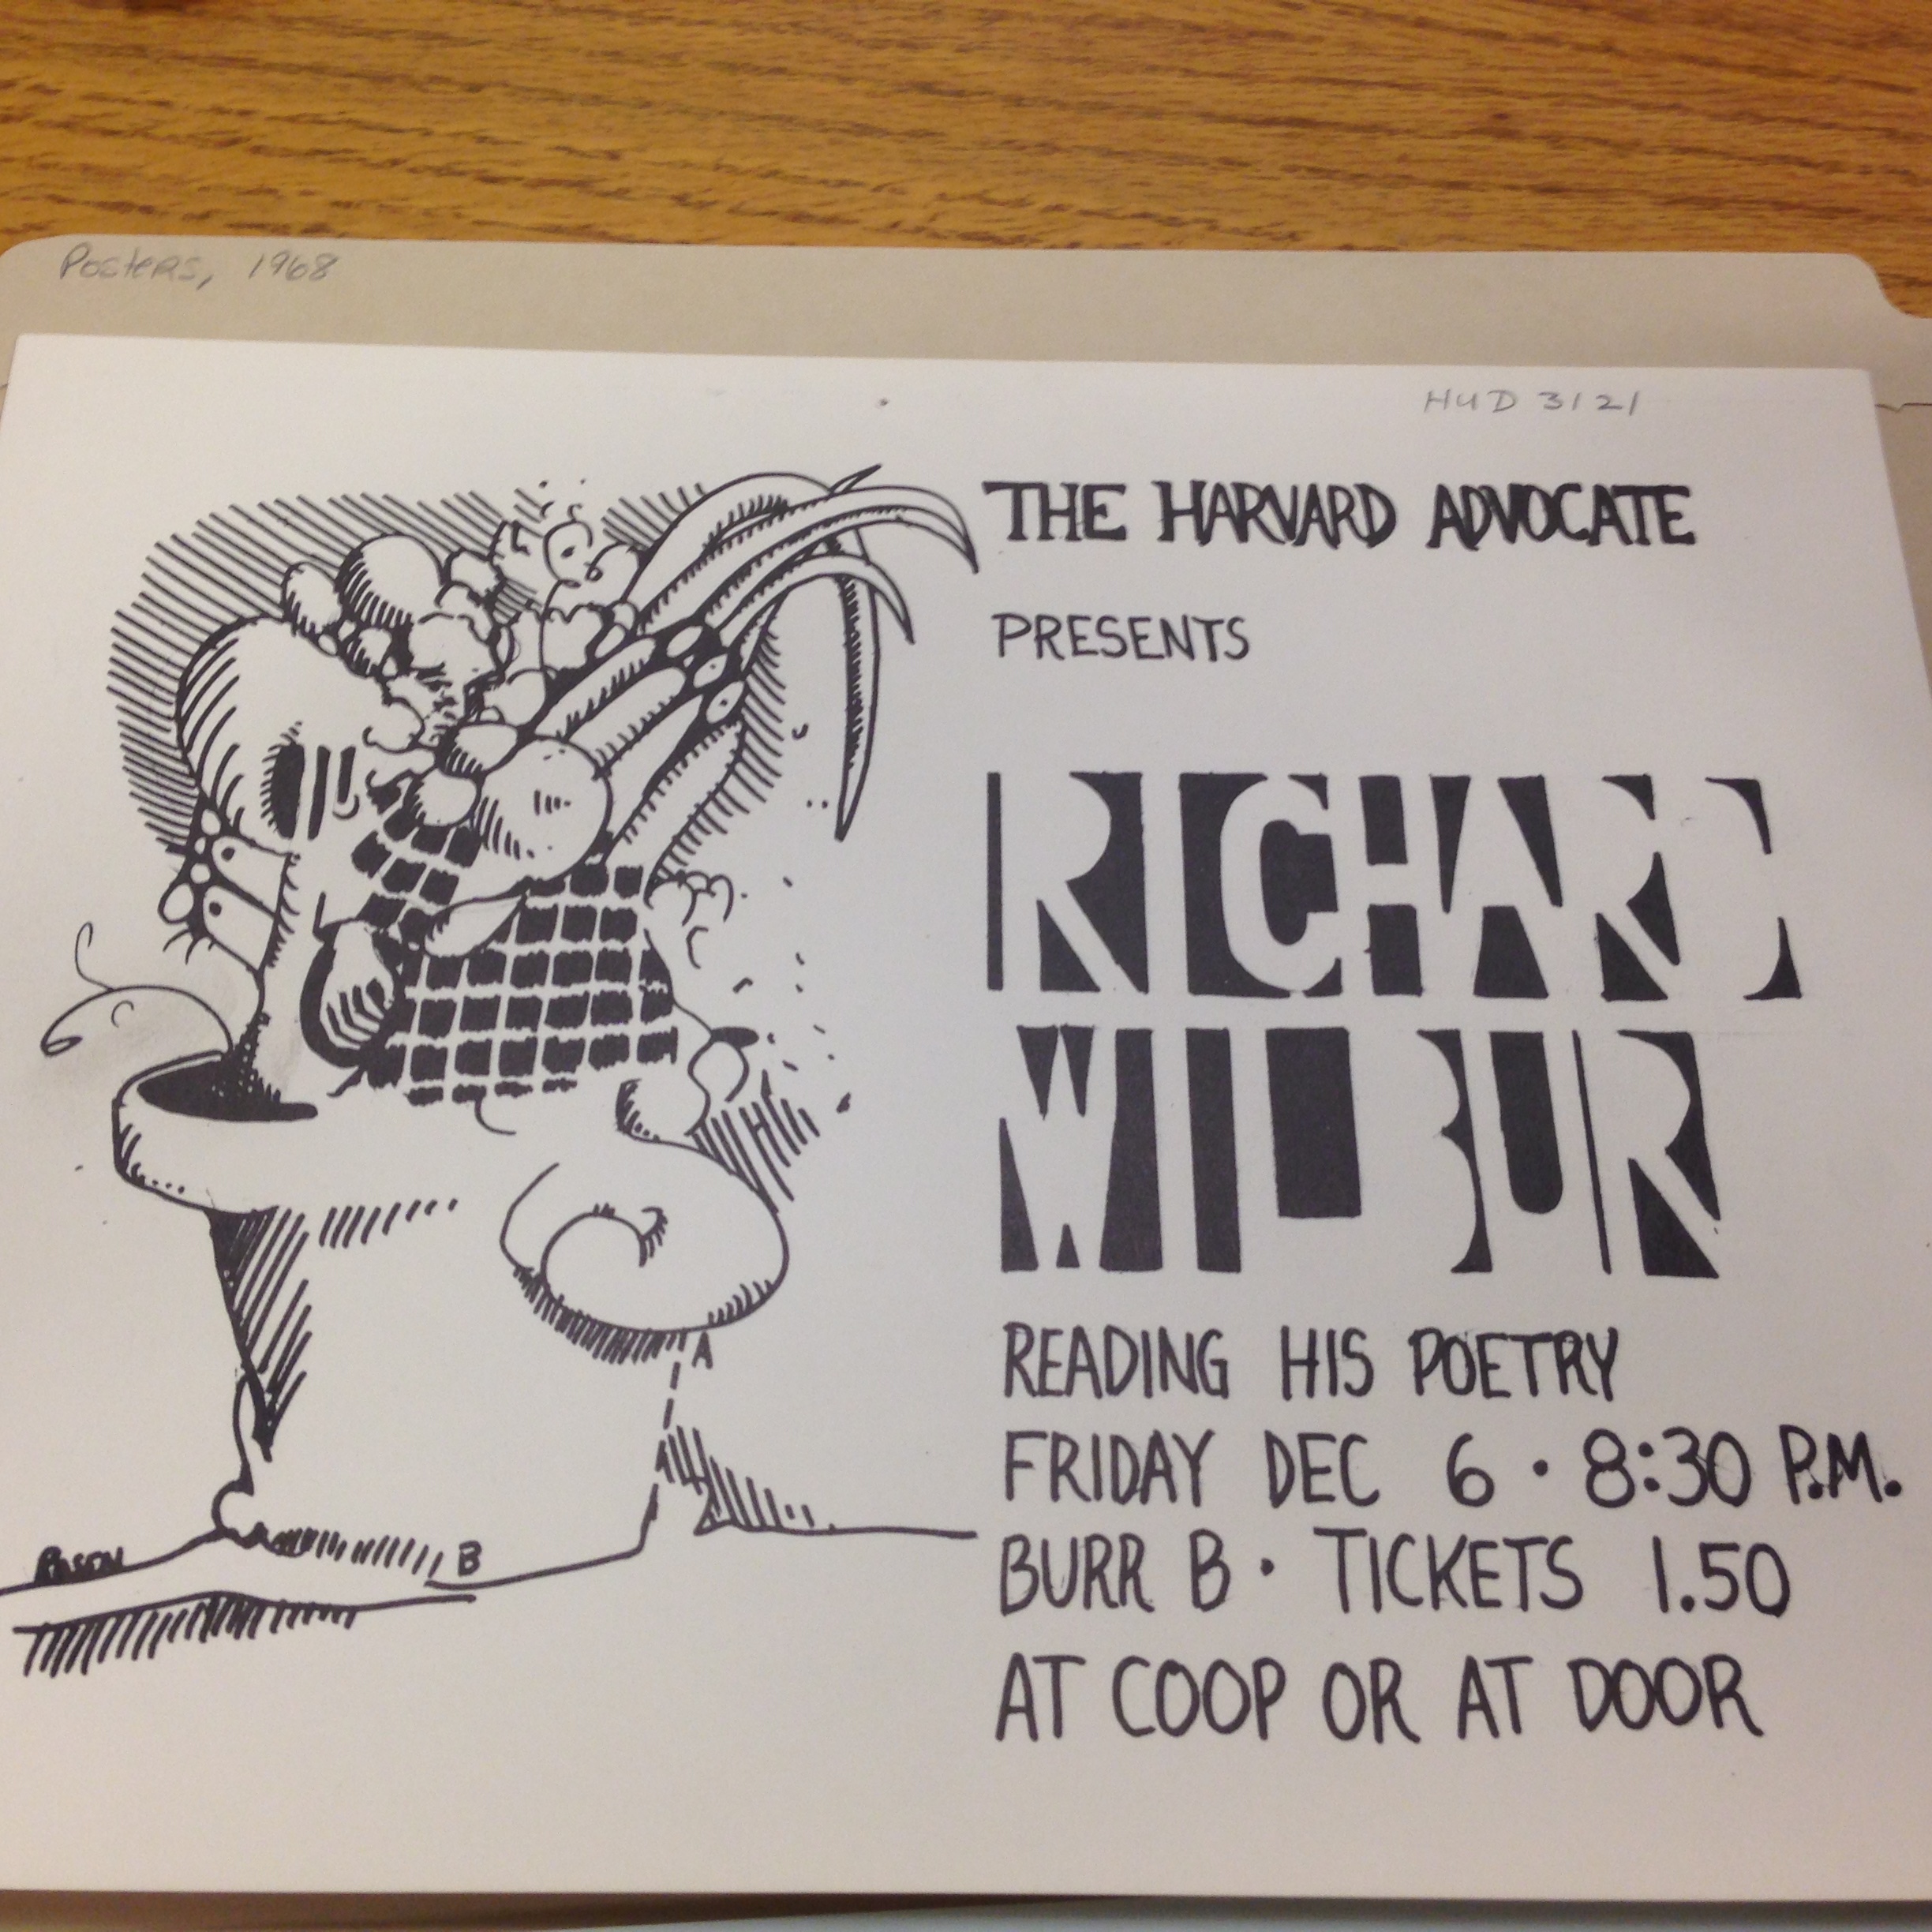 Posters, 1968
HUD 3121
THE HARVARD ADVOCATE
PRESENTS
RICHARD
WILBUR
READING HIS POETRY
FRIDAY DEC 6 · 8:30 P.M.
BURR B · TICKETS 1.50
AT COOP OR AT DOOR
A
B